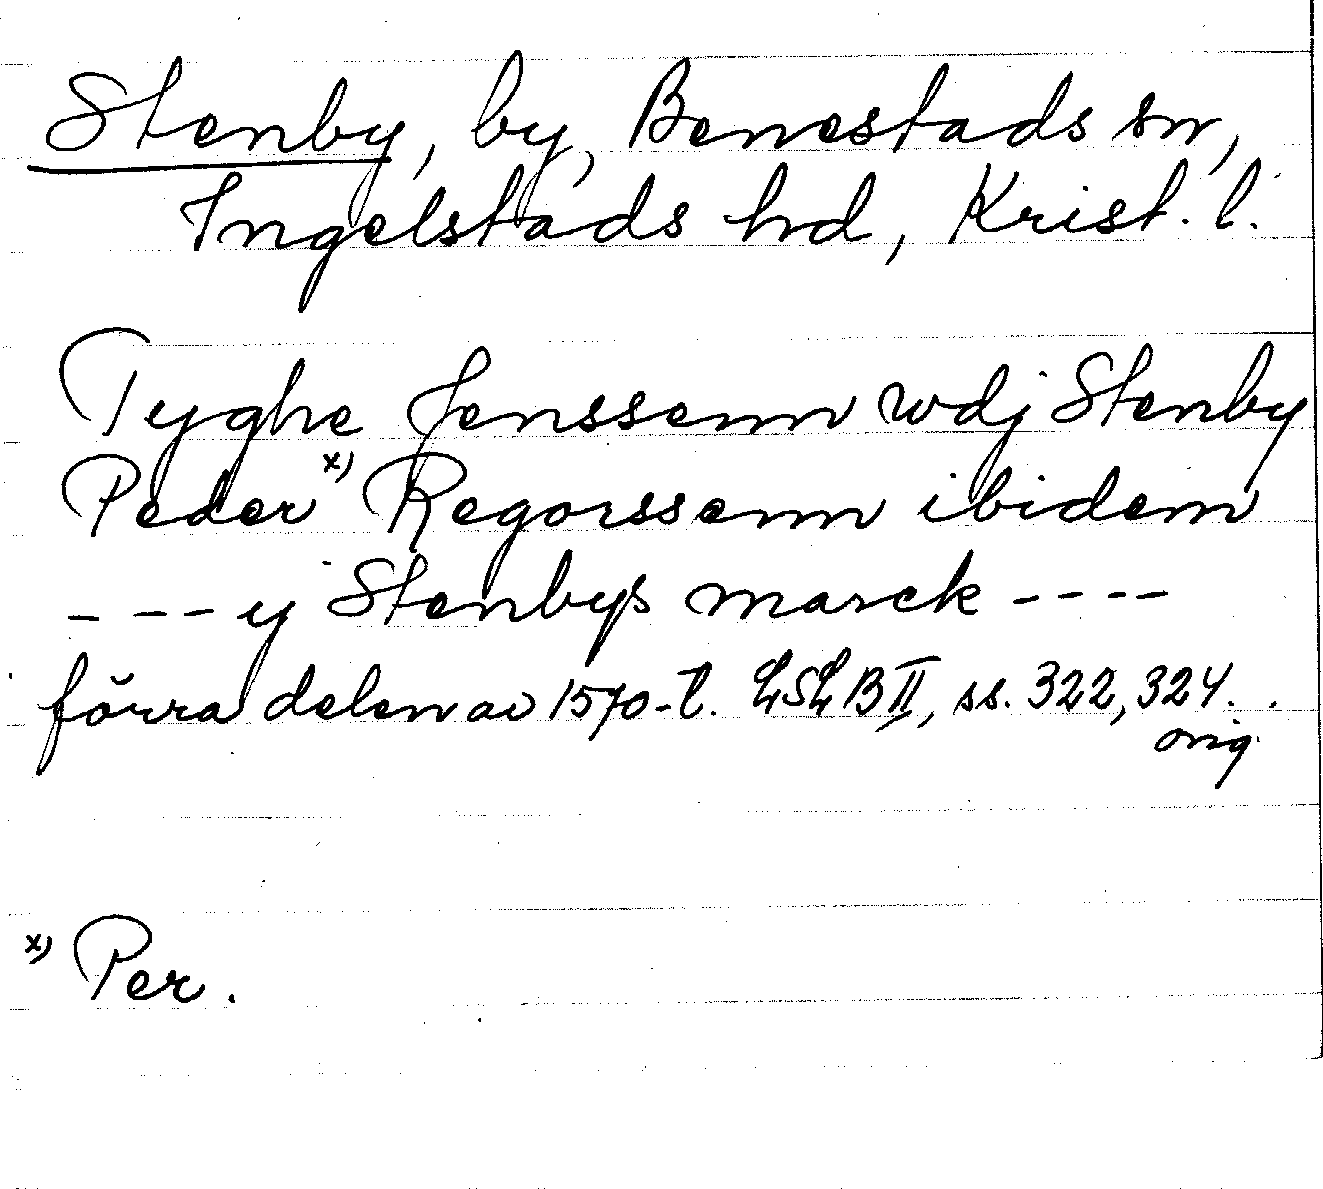 Stenby, by, Benestads sn,
Ingelstads hd, Krist. l.
Tyghe Jenssenn wdj Stenby
Peder x) Regorssenn ibidem
- - - y Stenbys marck - - - -
förra delen av 1570-t. LSLB II, ss. 322, 324.
orig.
x) Per.